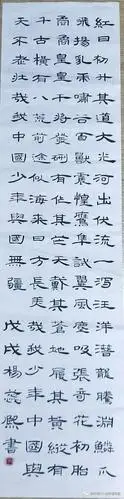 紅日初升其道大光河出伏流一瀉汪洋潛龍騰淵鱗爪
飛揚乳虎嘯谷百獸震惶鷹隼試翼風塵吸張奇花初胎
矞矞皇皇干將發硎有作其芒天戴其蒼地履其黃縱有
千古橫有八荒前途似海來日方長美哉我少年中國與
天不老壯哉我中國少年與國無疆 戊戌楊熙書